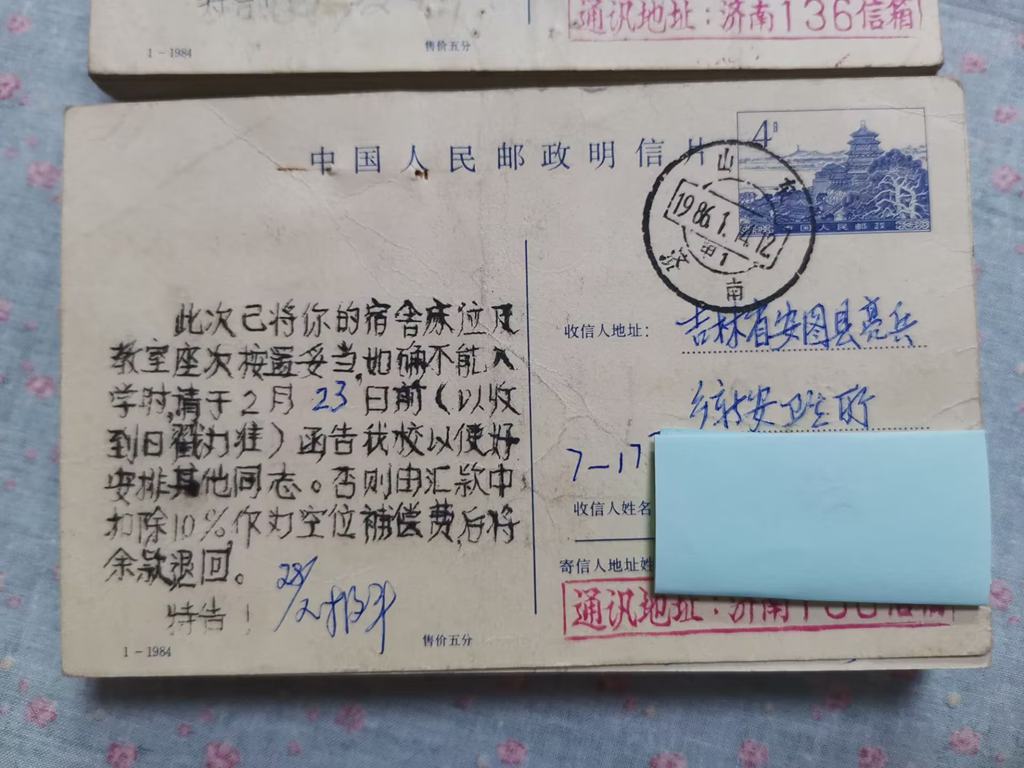 通讯地址：济南136信箱
1－1984
售价五分
中国人民邮政明信片
4分
中国人民邮政
山东
1986.1.14.12
甲1
济南
此次已将你的宿舍床位及
教室座次按置妥当,如确不能入
学时,请于2月23日前（以收
到日戳为准）函告我校以便好
安排其他同志。否则由汇款中
扣除10％作为空位補偿费,后将
余款退回。
特告！
28/2报到
收信人地址：
吉林省安图县亮兵
乡新安卫生所
7－17
收信人姓名
寄信人地址姓
通讯地址：济南136信箱
1－1984
售价五分